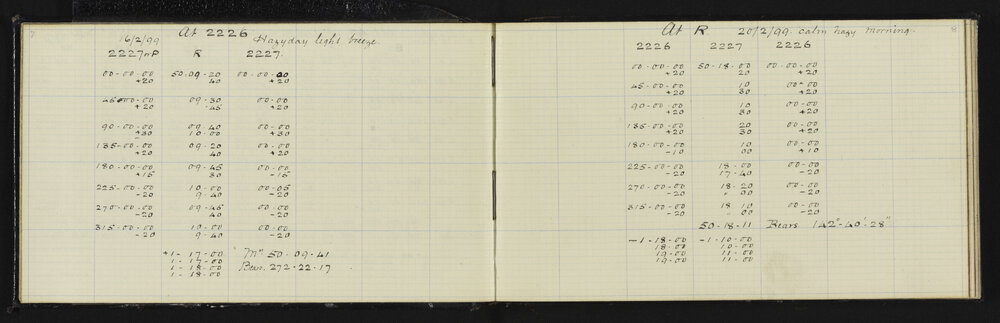 7
At 2226
16/2/99 Hazy day light breeze.
2227 or P R 2227.
00-00-00 50-09-20 00-00-00
+20 40 +20
45-00-00 09-30 00-00
+20 45 +20
90-00-00 09-40 00-00
+30 10-00 +30
135-00-00 09-20 00-00
+20 40 +20
180-00-00 09-45 00-00
+15 30 -15
225-00-00 10-00 00-05
-20 9-40 -20
270-00-00 09-45 00-00
-20 40 -20
315-00-00 10-00 00-00
-20 9-40 -20
+1-17-00 Mn 50-09-41
1-17-00 Bears 272-22-17
1-18-00
1-18-00
8
At R 20/2/99. calm hazy morning.
2226 2227 2226
00-00-00 50-18-00 00-00-00
+20 20 +20
45-00-00 10 00-00
+20 30 +20
90-00-00 10 00-00
+20 30 +20
135-00-00 20 00-00
+20 30 +20
180-00-00 10 00-00
-10 00 +10
225-00-00 18-00 00-00
-20 17-40 -20
270-00-00 18-20 00-00
-20 00 -20
315-00-00 18 10 00-00
-20 00 -20
50-18-11 Bears 142°-40'-28"
-1-18-00 -1-10-00
18-00 10-00
19-00 11-00
19-00 11-00